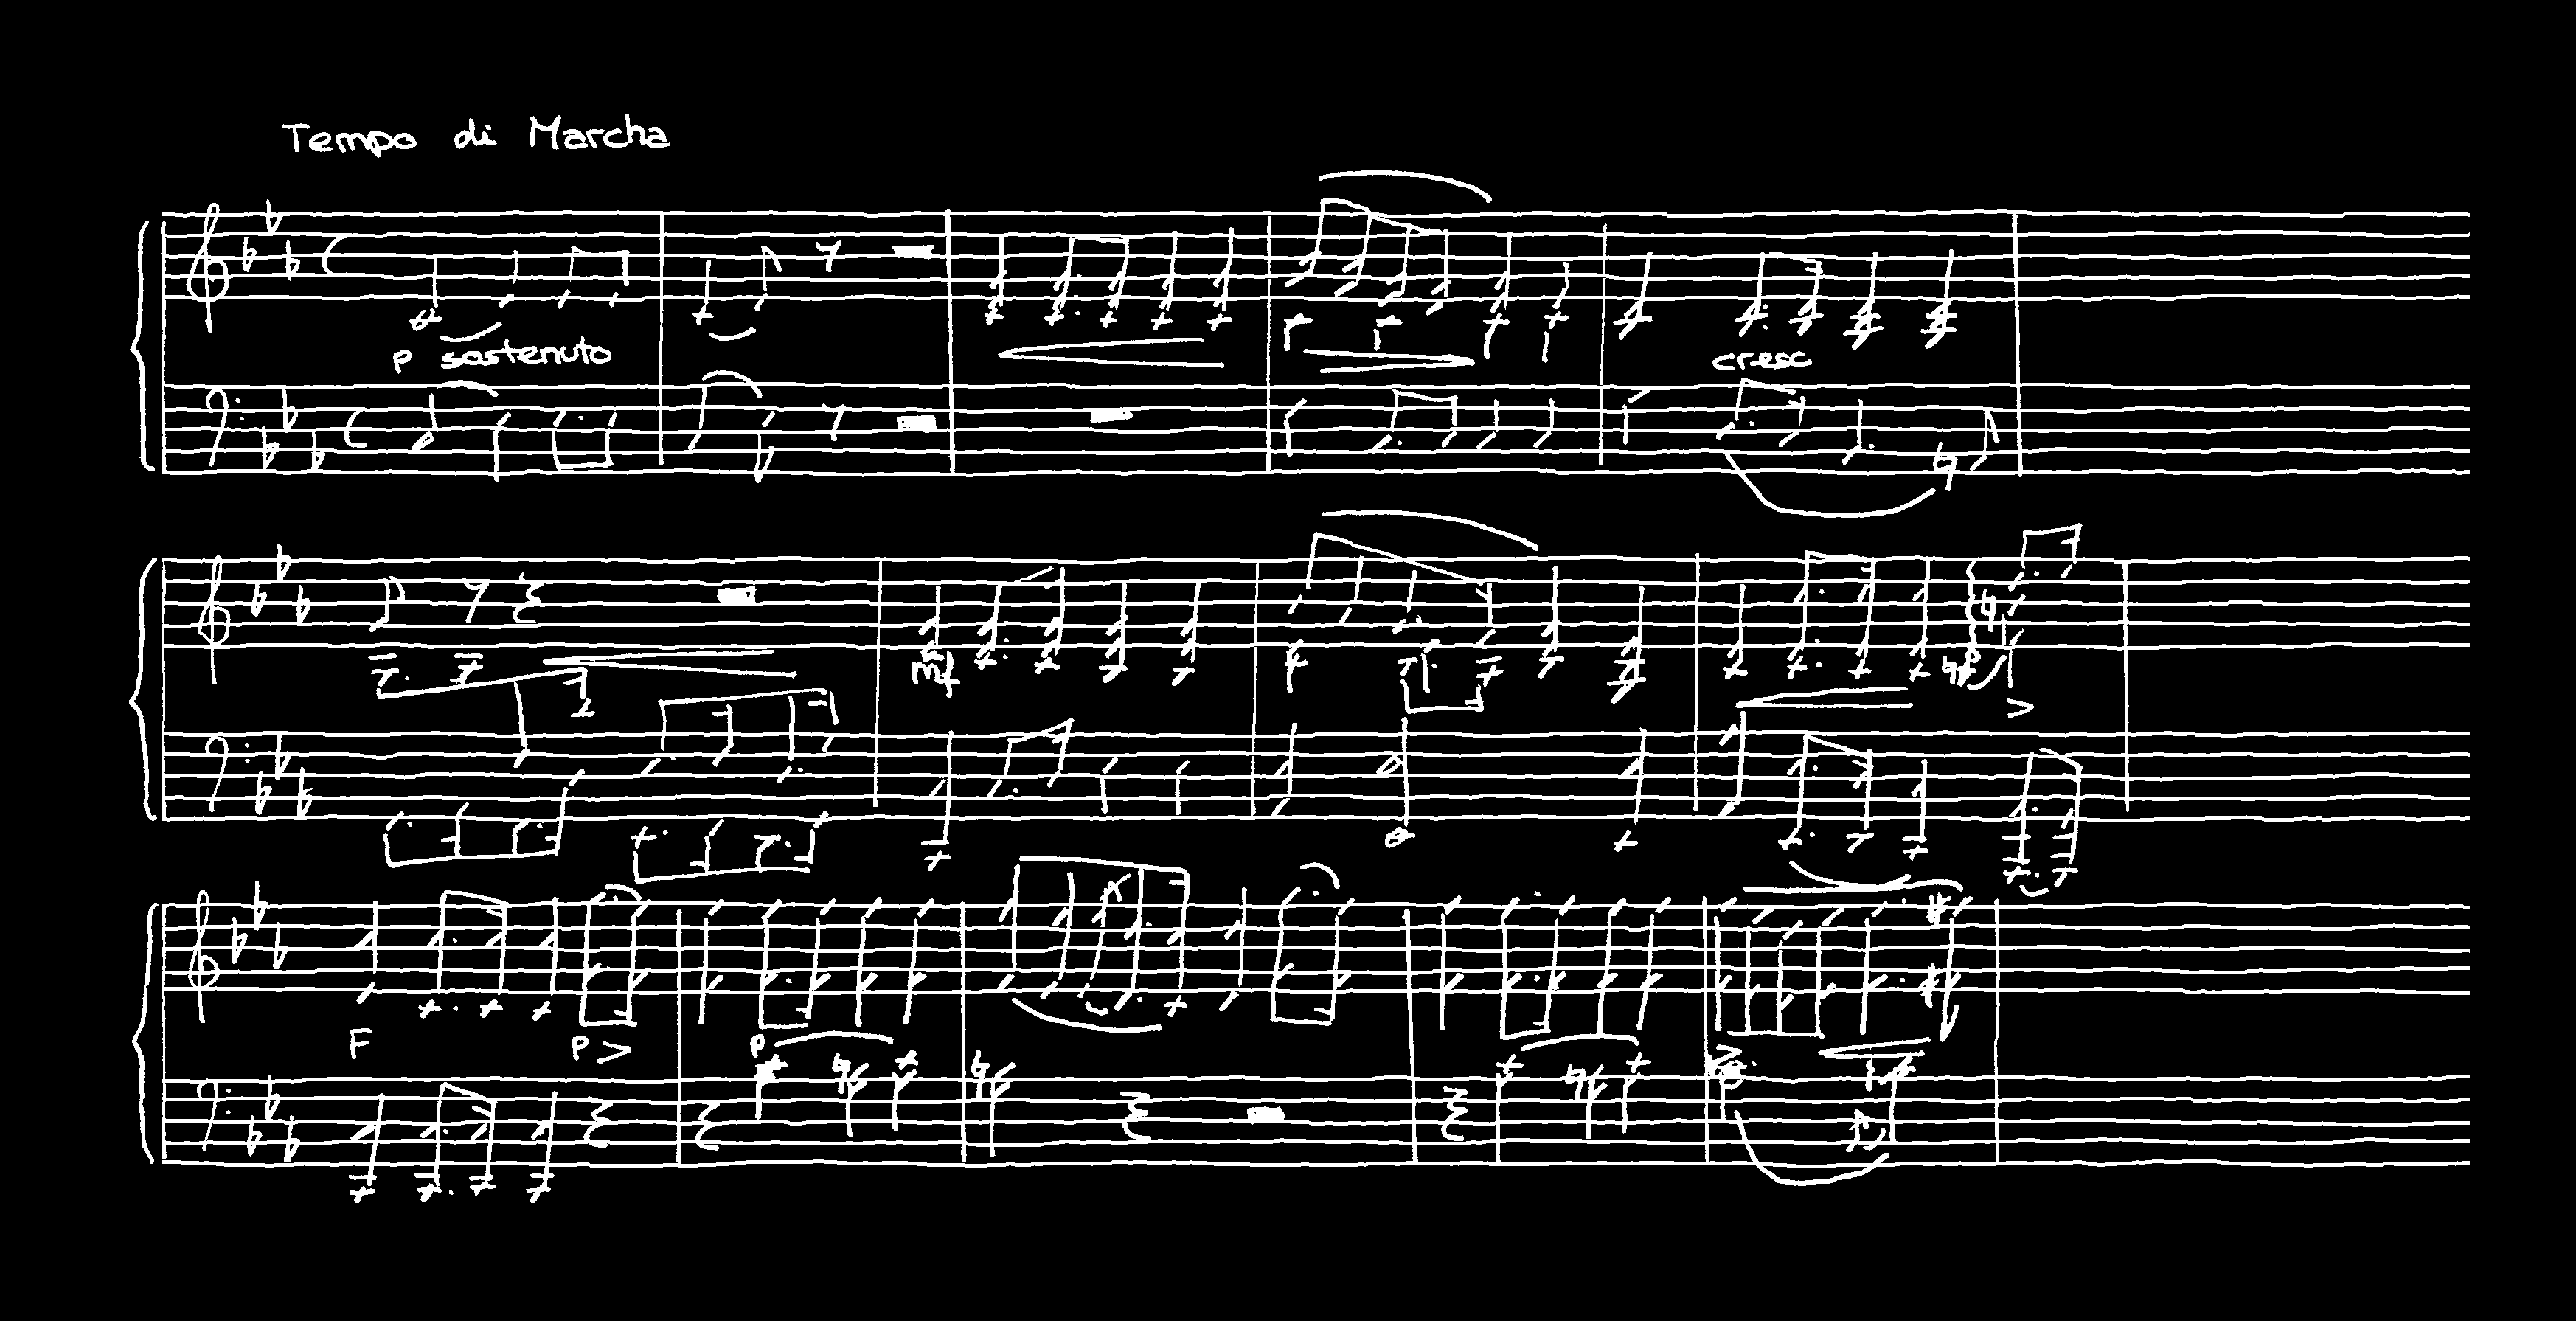 Tempo di Marcha
p sostenuto
cresc
mf
F p p